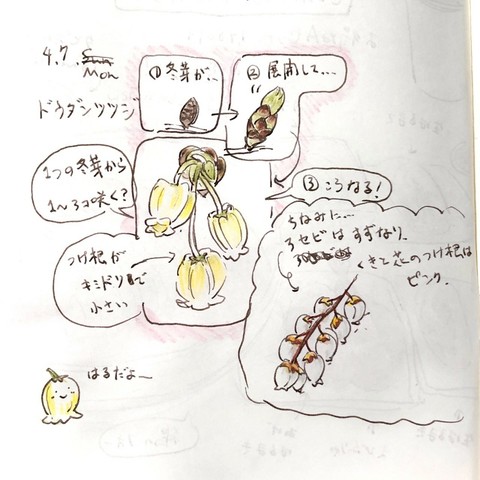 4.7. Sun Mon
ドウダンツツジ
①冬芽が…
②展開して…
③こうなる!
1つの冬芽から
1〜3コ咲く?
つけ根が
キミドリで
小さい
ちなみに…
アセビはすずなり。
くきと花のつけ根は
ピンク。
はるだよ〜